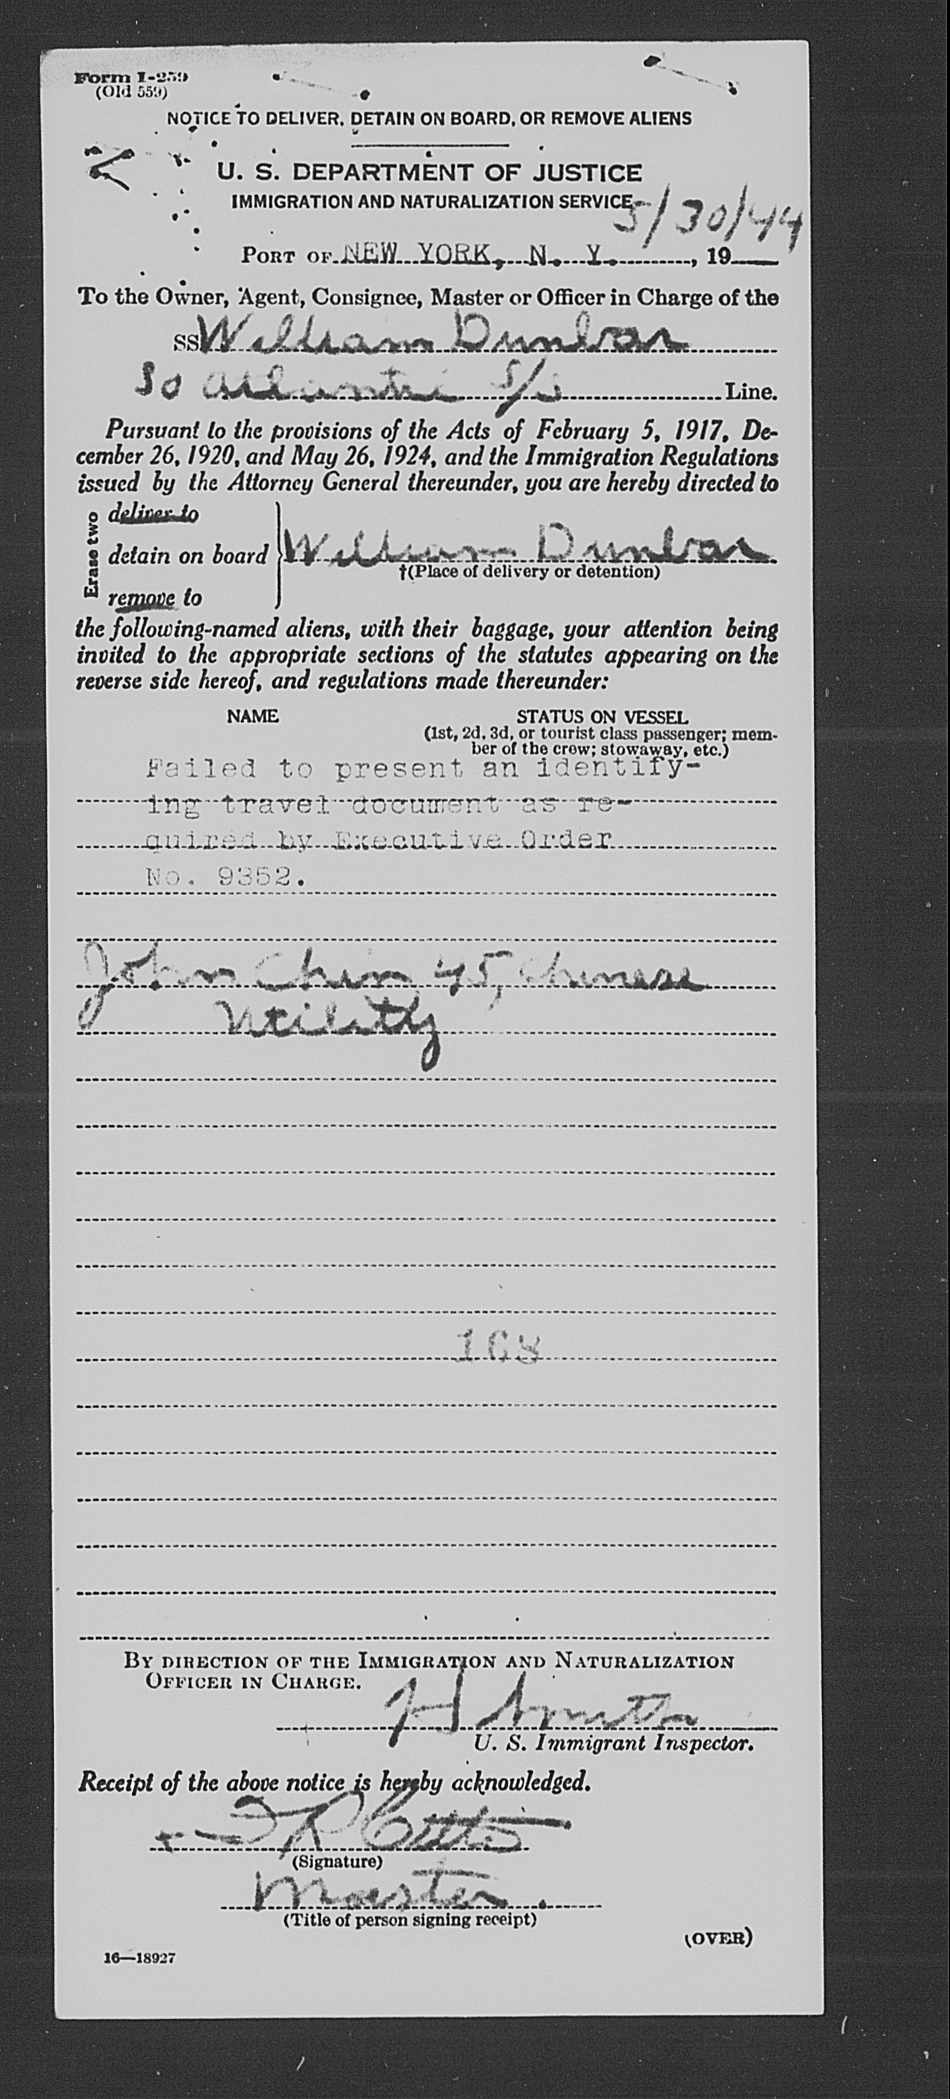 Form I-259
(Old 559)
NOTICE TO DELIVER, DETAIN ON BOARD, OR REMOVE ALIENS
U. S. DEPARTMENT OF JUSTICE
IMMIGRATION AND NATURALIZATION SERVICE
5/30/44
PORT OF NEW YORK, N. Y. , 19
To the Owner, Agent, Consignee, Master or Officer in Charge of the
SS William Dunbar
So Atlantic S/S Line.
Pursuant to the provisions of the Acts of February 5, 1917, De-
cember 26, 1920, and May 26, 1924, and the Immigration Regulations
issued by the Attorney General thereunder, you are hereby directed to
Erase two
deliver to
detain on board William Dunbar
†(Place of delivery or detention)
remove to
the following-named aliens, with their baggage, your attention being
invited to the appropriate sections of the statutes appearing on the
reverse side hereof, and regulations made thereunder:
NAME STATUS ON VESSEL
(1st, 2d, 3d, or tourist class passenger; mem-
ber of the crew; stowaway, etc.)
Failed to present an identify-
ing travel document as re-
quired by Executive Order
No. 9352.
John Chim 45, Chinese
Utility
168
BY DIRECTION OF THE IMMIGRATION AND NATURALIZATION
OFFICER IN CHARGE.
H Smith
U. S. Immigrant Inspector.
Receipt of the above notice is hereby acknowledged.
(Signature)
Master
(Title of person signing receipt)
(OVER)
16—18927